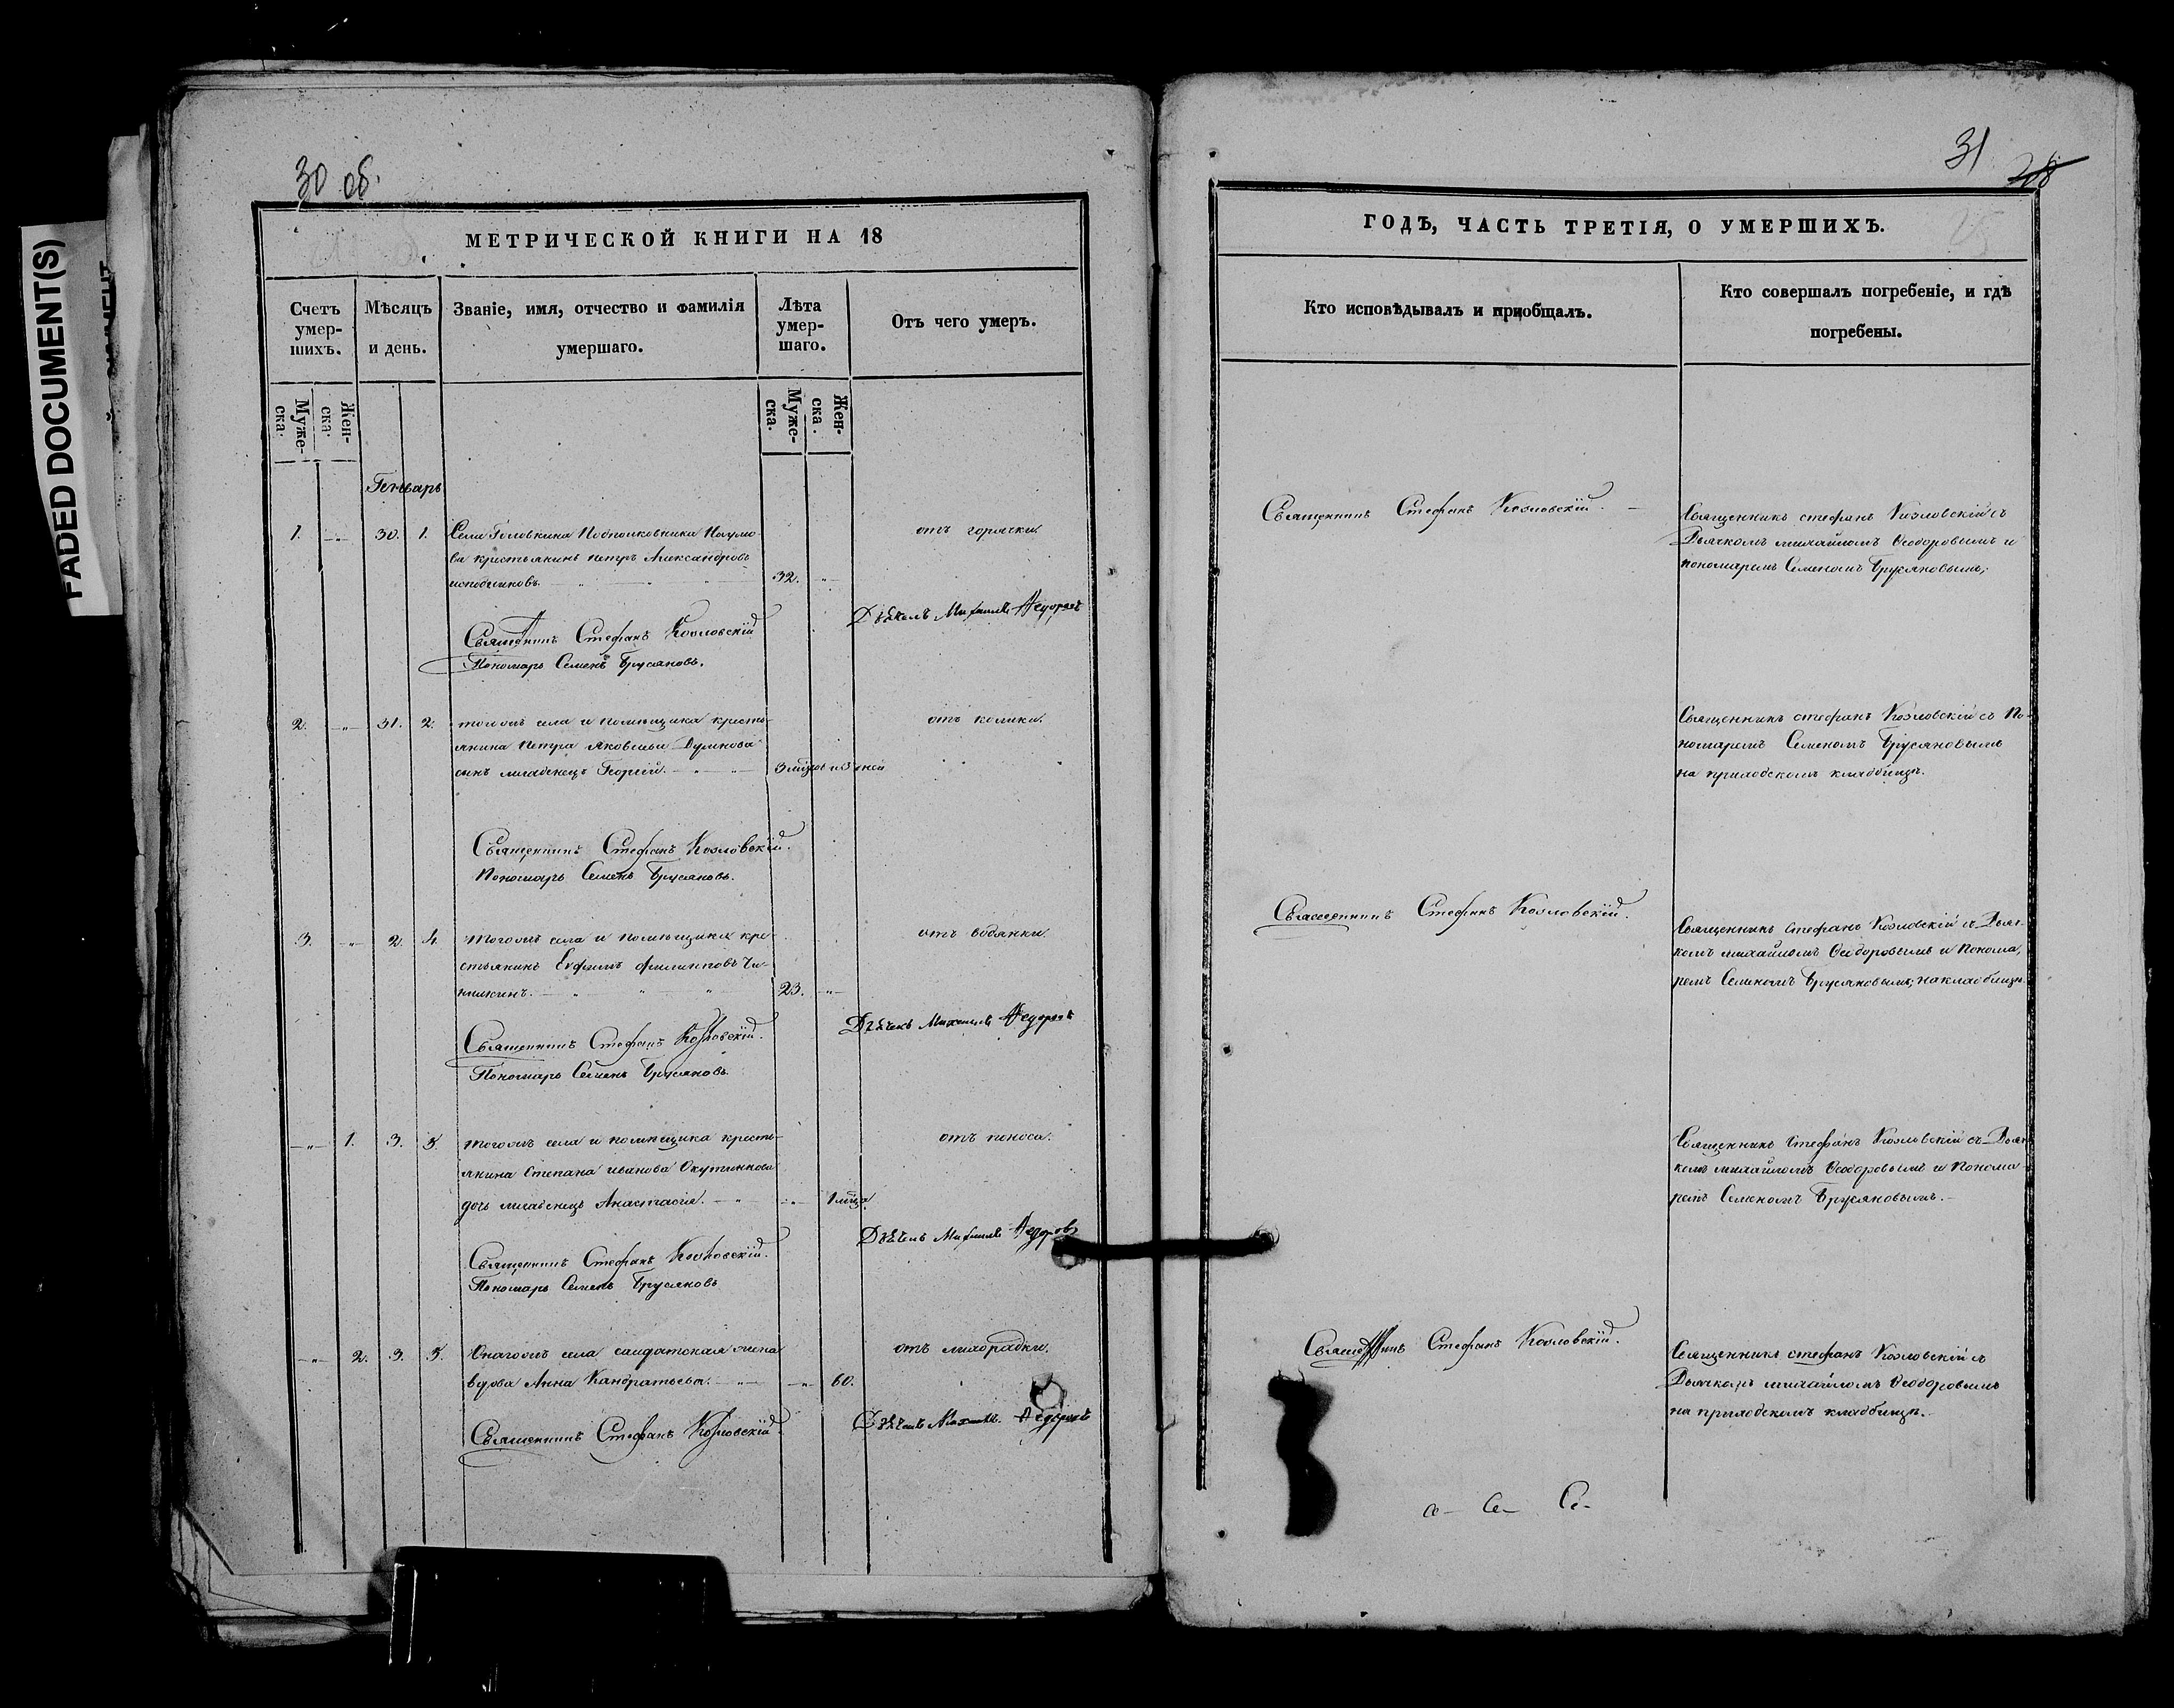 FADED DOCUMENT(S)
30 об.
МЕТРИЧЕСКОЙ КНИГИ НА 18
Счетъ умер-шихъ.
Мѣсяцъ и день.
Званіе, имя, отчество и фамилія умершаго.
Лѣта умер-шаго.
Отъ чего умеръ.
Муже-ска.
Жен-ска.
Муже-ска.
Жен-ска.
Генварь
1. 30. 1. Села Головкина Подполковника Наумо-
ва крестьянинъ петръ Александровъ
32.
отъ горячки.
Священникъ Стефанъ Козловскій
Пономарь Семенъ Брусяновъ.
Дьячекъ Михаилъ Федоровъ
2. 31. 2. тогожъ села и помѣщика кресть-
янина петра яковлева
сынъ младенецъ Георгій. 3 мѣсов и 3 дней
отъ колики.
Священникъ Стефанъ Козловскій.
Пономарь Семенъ Брусяновъ.
3. 2. 4. тогожъ села и помѣщика кре-
стьянинъ Евфимъ филиповъ
23.
отъ водянки.
Священникъ Стефанъ Козловскій.
Пономарь Семенъ Брусяновъ.
Дьячекъ Михаилъ Федоровъ
1. 3. 5. тогожъ села и помѣщика кресть-
янина Степана иванова
дочь младенецъ Анастасія. 1 мѣся.
отъ поноса.
Священникъ Стефанъ Козловскій.
Пономарь Семенъ Брусяновъ
Дьячекъ Михаилъ Федоровъ
2. 3. 5. Онагожъ села салдатская жена
вдова Анна Кандратьева. 60.
отъ лихорадки.
Священникъ Стефанъ Козловскій
Дьячекъ Михаилъ Федоровъ
31
28
ГОДЪ, ЧАСТЬ ТРЕТІЯ, О УМЕРШИХЪ.
Кто исповѣдывалъ и пріобщалъ.
Кто совершалъ погребеніе, и гдѣ погребены.
Священникъ Стефанъ Козловскій.
Священникъ стефанъ Козловскій съ
Дьячкомъ михайломъ Ѳеодоровымъ и
пономаремъ Семеномъ Брусяновымъ,
Священникъ стефанъ Козловскій съ По-
номаремъ Семеномъ Брусяновымъ
на приходскомъ кладбищѣ.
Священникъ Стефанъ Козловскій.
Священникъ Стефанъ Козловскій съ Дьяч-
комъ михайломъ Ѳеодоровымъ и Понома,
ремъ Семеномъ Брусяновымъ, на кладбищѣ.
Священникъ Стефанъ Козловскій съ Дьяч-
комъ михайломъ Ѳеодоровымъ и Понома
ремъ Семеномъ Брусяновымъ.
Священникъ Стефанъ Козловскій.
Священникъ стефанъ Козловскій съ
Дьячкомъ михайломъ Ѳеодоровымъ
на приходскомъ кладбищѣ.